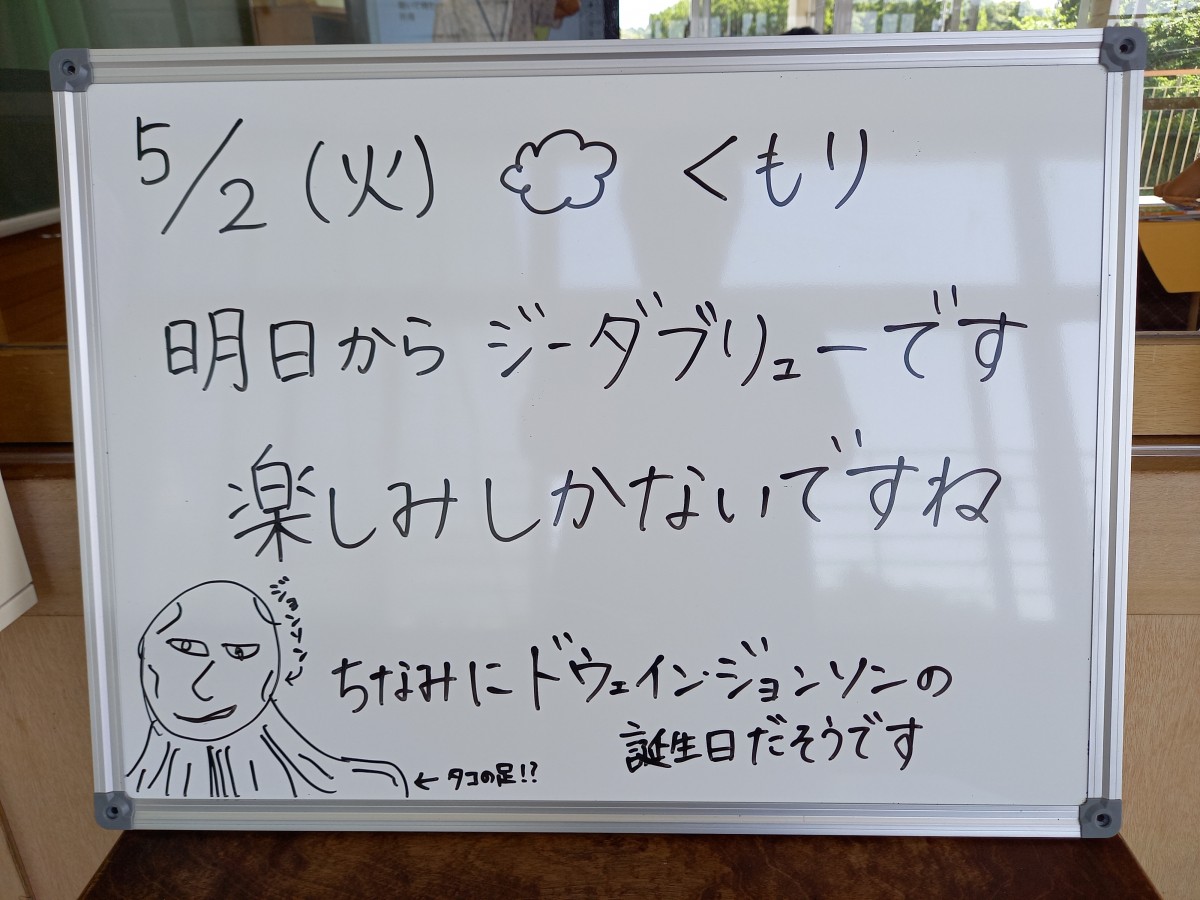 5/2 (火) くもり
明日からジーダブリューです
楽しみしかないですね
ジョンソン
ちなみにドウェイン・ジョンソンの
誕生日だそうです
←タコの足!?